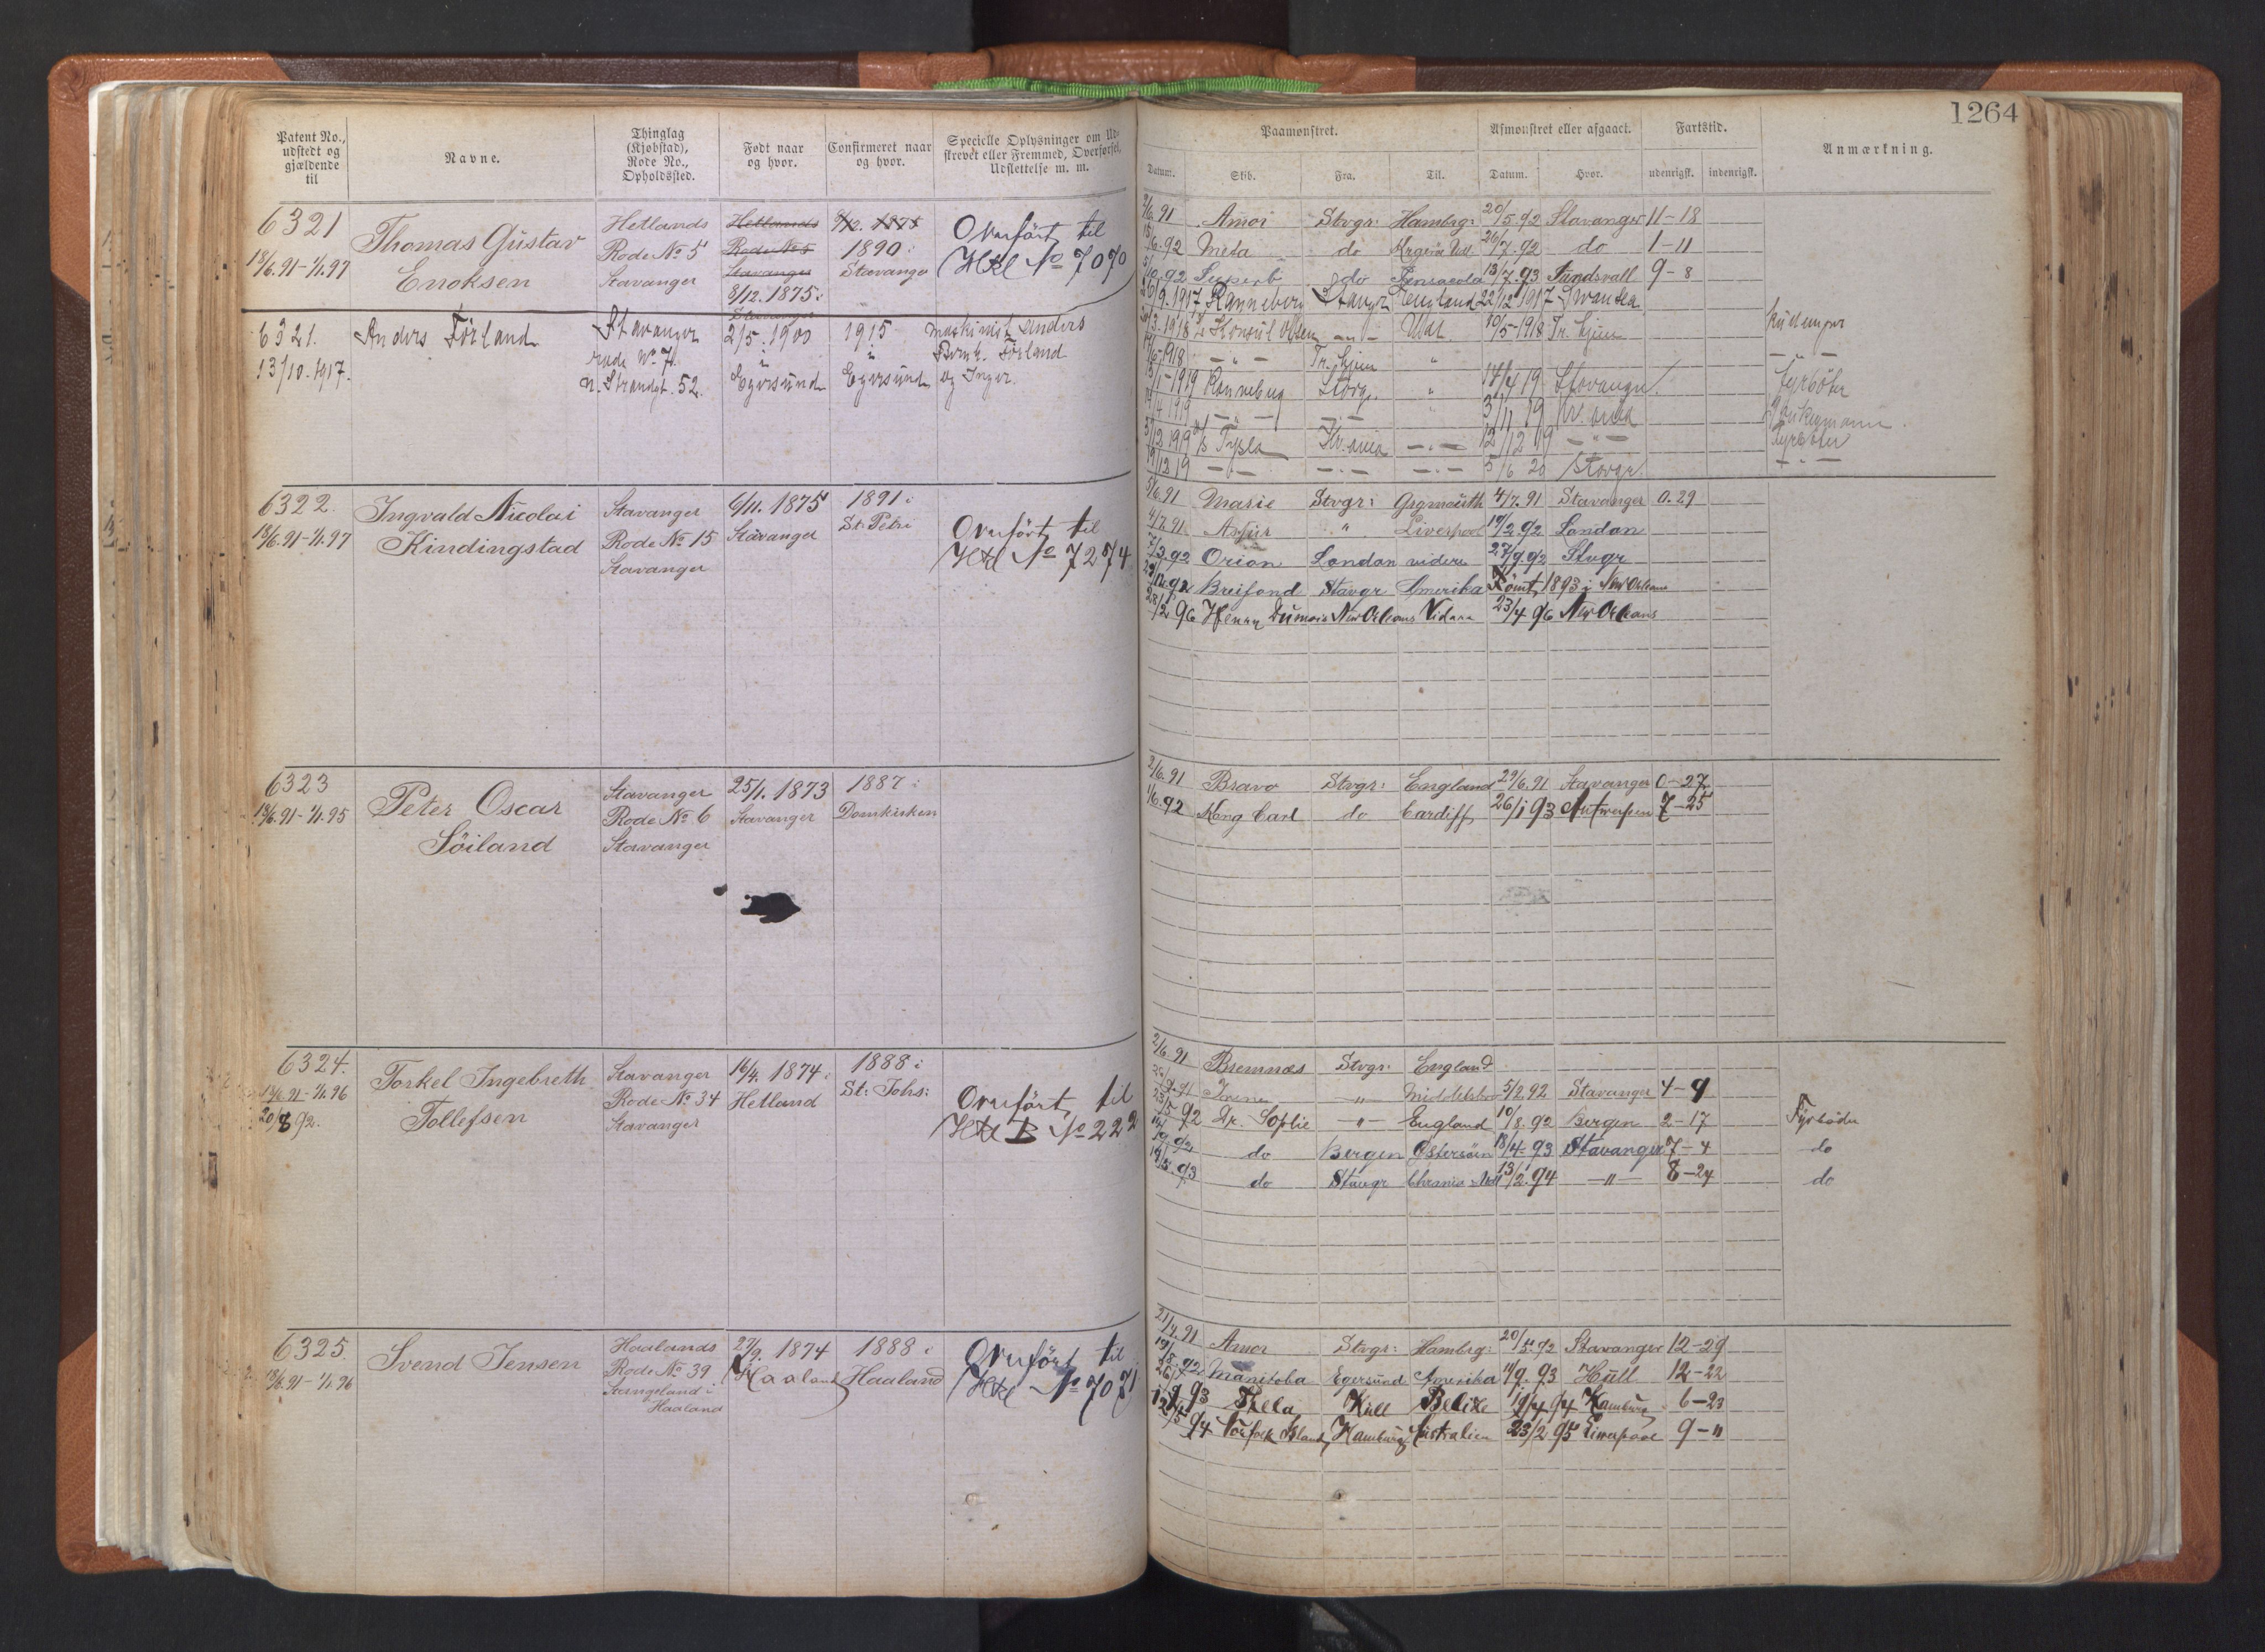 1264
Patent No., udstedt og gjældende til
Navne.
Thinglag (Kjøbstad), Rode No., Opholdssted.
Født naar og hvor.
Confirmeret naar og hvor.
Specielle Oplysninger om Udskrevet eller Fremmed, Overførsel, Udslettelse m. m.
Paamønstret.
Afmønstret eller afgaaet.
Fartstid.
Anmærkning.
Datum. Skib. Fra. Til. Datum. Hvor. udenrigsk. indenrigsk.
6321
18/6.91-1/1.97
Thomas Gustav
Enoksen
Hetlands
Rode No 5
Stavanger
Hetlands
Rode No 5
Stavanger
8/12.1875 i
Stavanger
8/12. 1875
1890 i
Stavanger
Overført til
Htl No 7070
2/6.91 Amor Stvgr: Hambrg: 20/5.92 Stavanger 11-18
Meta do 26/7.92 do 1-11
Superb do Pensacola 13/7.93 Sundsvall 9-8
6321.
13/10-1917.
Anders Förland
Stavanger
rode No 7.
n. Strandgt. 52.
2/5.1900
i
Egersund
1915
i
Egersund
Maskinist Anders
Bernh. Förland
og Inger.
Ranneberg Stavgr England 22/12 1917 Swansea
Konsul Olsen -"- Udl. 10/5-1918 Tr. hjem
-"- Tr. hjem " -"-
Ranneberg Stavgr. " 14/4 19 Stavanger Fyrböter
-"- -"- " 3/11 19 Kr.ania
Tysla Kr.ania -"- 12/12 19 -"- Fyrböter
19/12 19 -"- -"- -"- 5/6 20 Stavgr. -"-
6322
18/6.91-1/1.97
Ingvald Nicolai
Kindingstad
Stavanger
Rode No 15
Stavanger
6/11. 1875
Stavanger
1891 i
St: Petri
Overført til
Htl No 7254
5/6.91 Marie Stvgr: Grgmouth 4/7.91 Stavanger 0.29
4/7.91 " Liverpool London
Orion London videre 27/9.92 Stvgr
Breifond Stavgr Amerika Römt 1893 i New Orleans
28/2 96 Henry Dumois New Orleans Vidare 23/4 96 New Orleans
6323
18/6.91-1/1.95
Peter Oscar
Söiland
Stavanger
Rode No 6
Stavanger
25/1. 1873
Stavanger
1887 i
Domkirken
2/6.91 Bravo Stvgr: England 29/6.91 Stavanger 0-27
1/6.92 Kong Carl do Cardiff 26/1 93 Antwerpen 7-25
6324.
18/6.91-1/1.96
20/8 92.
Torkel Ingebreth
Tollefsen
Stavanger
Rode No 34
Stavanger
16/4. 1874 i
Hetland
1888 i
St: Johs:
Overført til
Htl B No 222
2/6.91 Bremnæs Stvgr: England
Irene -"- Middlesbro 5/2 92 Stavanger 4-9
Dr. Sophie -"- England 10/8.92 Bergen 2-17 Fyrböder
do Bergen Østersöen 18/4.93 Stavanger 7-4 do
do Stavgr 13/2.94 -"- 8-24 do
6325.
18/6.91-1/1.96
Svend Jensen
Haalands
Rode No 39
Stangeland i
Haaland
27/9. 1874
i Haaland
1888 i
Haaland
Overført til
Htl No 7071
Amor Stvgr: Hambrg: 20/5.92 Stavanger 12-29
Manitoba Egersund Amerika 11/9.93 Hull 12-22
Thela Hull Belize 19/4 94 Hamburg 6-23
Norfolk Island Hamburg Australien 23/2 95 Liverpool 9-"